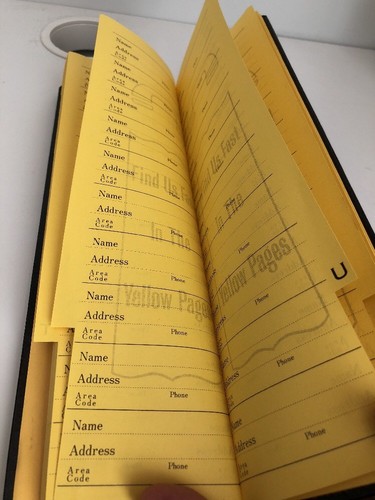 Name
Address
Area
Code
Name
Address
Area
Code
Name
Address
Area
Code Phone
Name
Address
Area
Code Phone
Name
Address
Area
Code Phone
Name
Address
Area
Code Phone
Name
Address
Area
Code Phone
Name
Address
Area
Code Phone
Name
Address
Area
Code Phone
Name
Address
Area
Code Phone
Find Us Fast
In The
Yellow Pages
Us Fast
In The
Yellow Pages
Phone
Phone
Name
Address
Phone
U